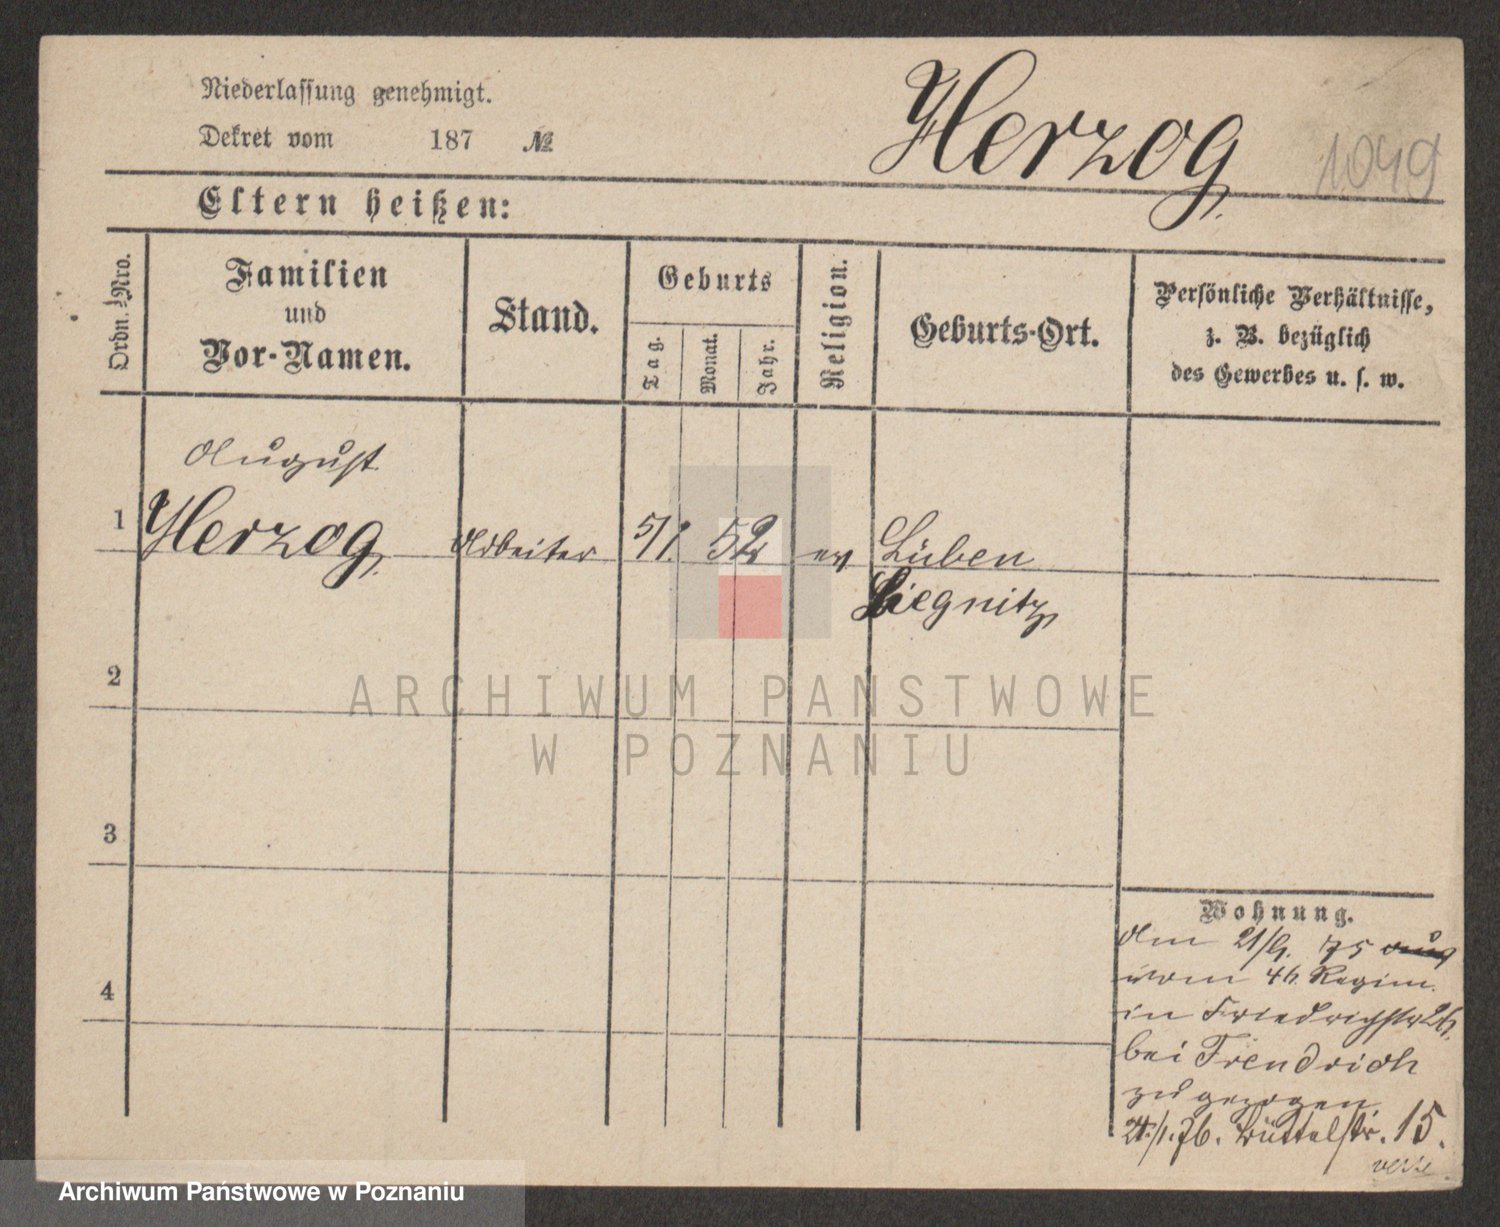 Niederlassung genehmigt.
Dekret vom 187 №
Herzog
1049
Eltern heißen:
Ordn.-Nro.
Familien
und
Vor-Namen.
Stand.
Geburts
Tag.
Monat.
Jahr.
Religion.
Geburts-Ort.
Persönliche Verhältnisse,
z. B. bezüglich
des Gewerbes u. s. w.
August
1 Herzog Arbeiter 5/1. 52 ev Lüben
Liegnitz
2
3
4
ARCHIWUM PAŃSTWOWE
W POZNANIU
Wohnung.
den 21/9. 75 aus
vom 46. Regim.
in Friedrichstr 26.
bei
zugezogen
/1. 76. Büttelstr. 15.
Archiwum Państwowe w Poznaniu